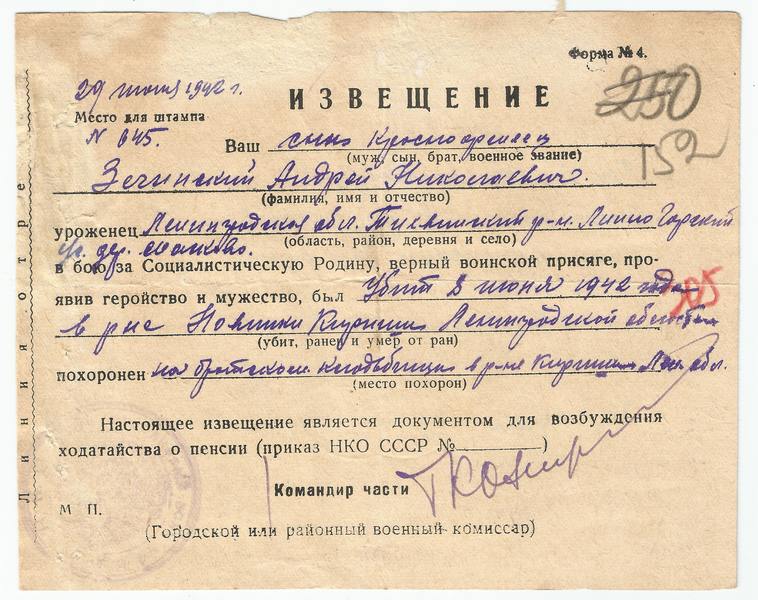 Форма № 4.
29 июня 1942 г.
ИЗВЕЩЕНИЕ
250
Место для штампа
N 645.
152
Ваш сын Красноармеец
(муж, сын, брат, военное звание)
Зечинский Андрей Николаевич.
(фамилия, имя и отчество)
уроженец Ленинградской обл. Тихвинский р-н.
дер.
(область, район, деревня и село)
в бою за Социалистическую Родину, верный воинской присяге, про-
явив геройство и мужество, был Убит 2 июня 1942 года
в р-не Новинки Кириши Ленинградской области
(убит, ранен и умер от ран)
похоронен на братском кладбище в р-не Кириши Лен. обл.
(место похорон)
Настоящее извещение является документом для возбуждения
ходатайства о пенсии (приказ НКО СССР № )
Командир части
М П.
(Городской или районный военный комиссар)
Линия отре